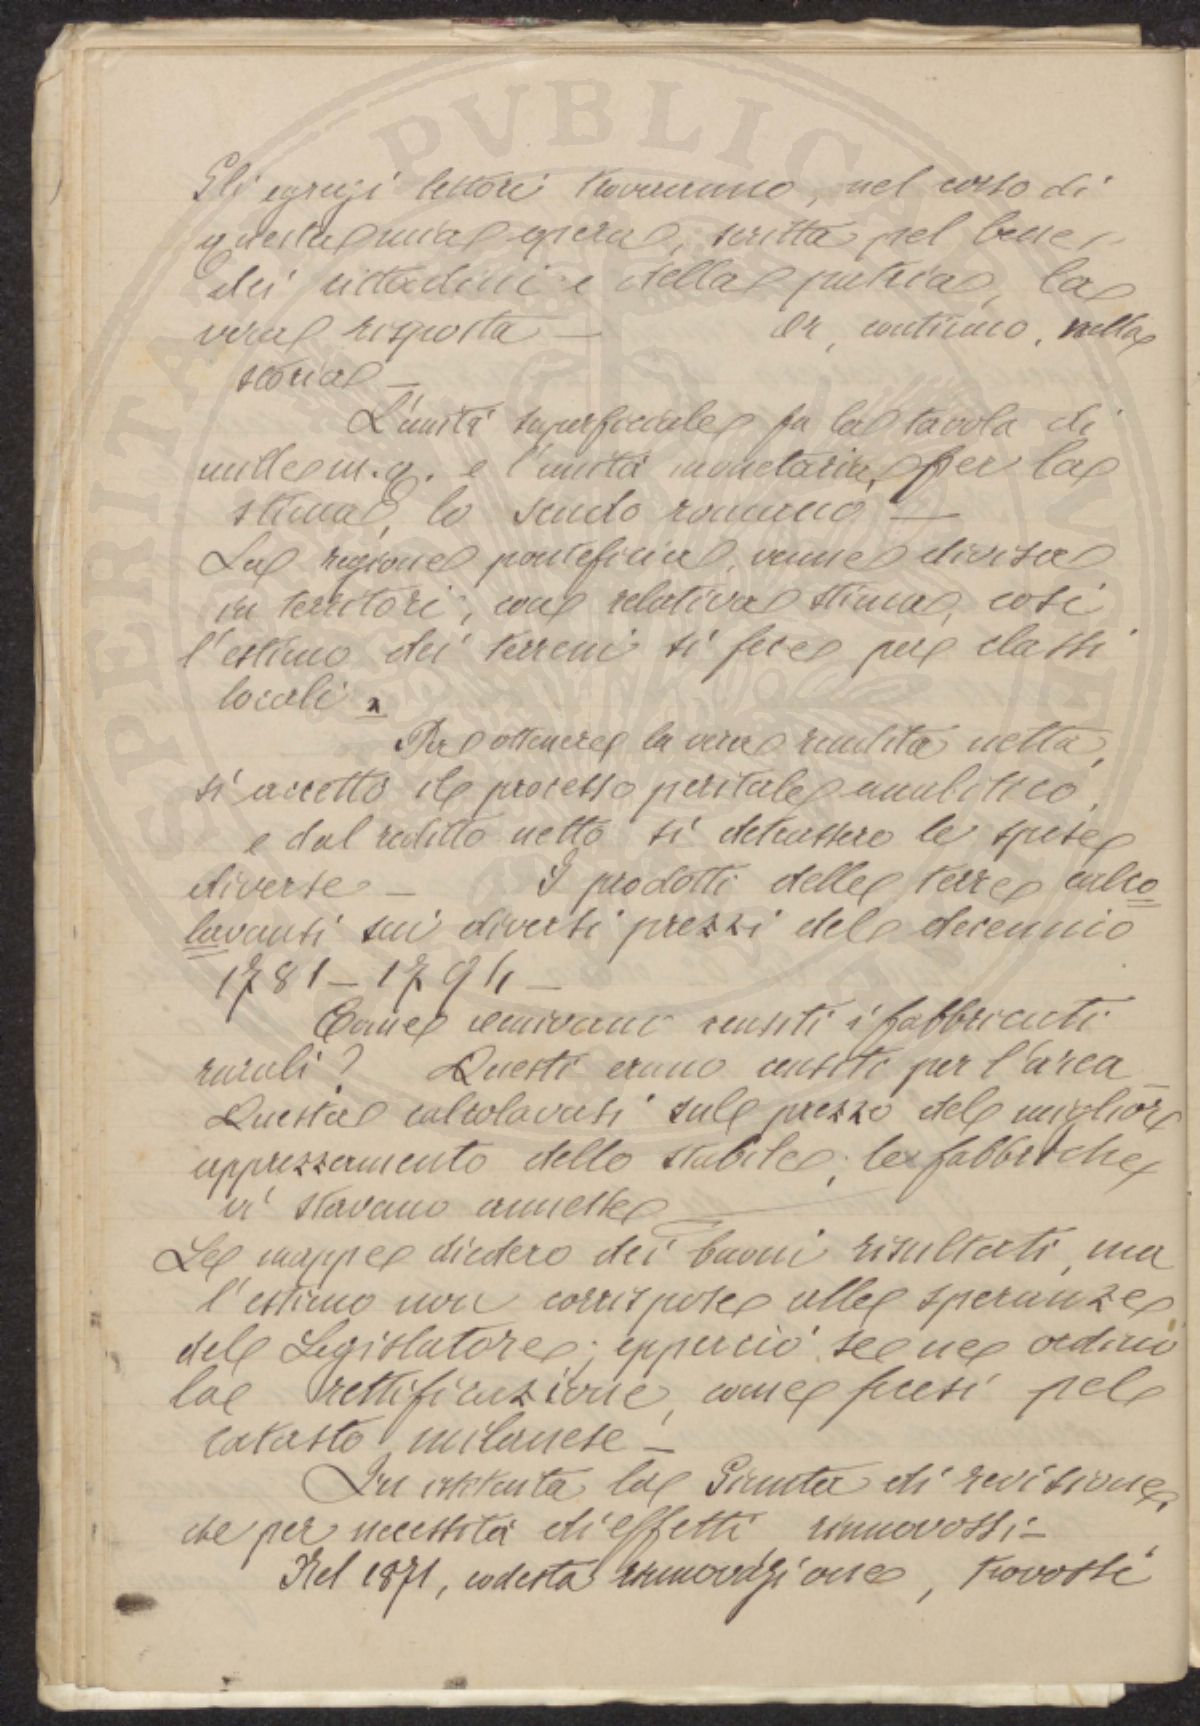 Gli egregi lettori troveranno, nel corso di
questa mia opera, scritta pel bene
dei cittadini e della patria, la
vera risposta — Or, continuo, nella
storia —
L'unità superficiale fu la tavola di
mille m.q. e l'unità monetaria, per la
stima, lo scudo romano —
La regione ponteficia, venne divisa
in territori, con relativa stima, così
l'estimo dei terreni si fece per classi
locali.
Per ottenere la vera rendita netta,
si accettò il processo peritale analitico,
e dal reddito netto si detrassero le spese
diverse — I prodotti delle terre calco
lavansi sui diversi prezzi del decennio
1781 — 1794 —
Come venivano censiti i fabbricati
rurali? Questi erano censiti per l'area
Questa calcolavasi sul prezzo del miglior
appezzamento dello stabile; le fabbriche
vi stavano annesse
Le mappe diedero dei buoni risultati, ma
l'estimo non corrispose alle speranze
del Legislatore; epperciò se ne ordinò
la rettificazione, come fecesi pel
catasto milanese —
Fu istituita la Giunta di revisione,
che per necessità di effetti, rinnovossi —
Nel 1871, codesta rinnovazione, trovossi